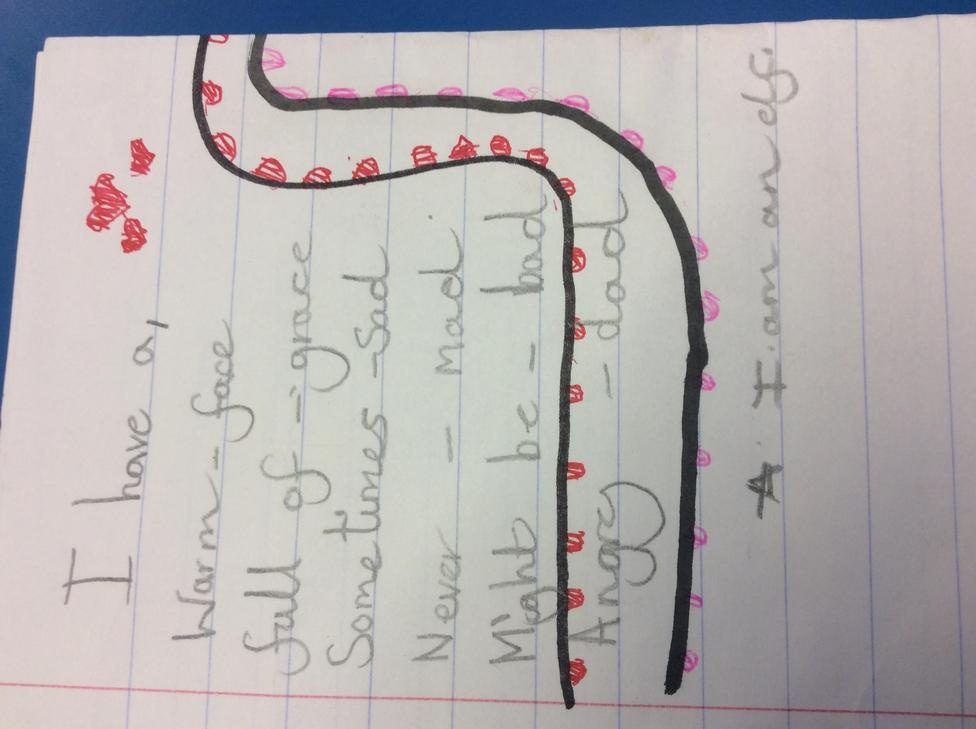 I have a,
Warm - face
full of - grace
Sometimes - Sad
Never - Mad.
Might be - bad
Angry - dad
A. I am an elf.